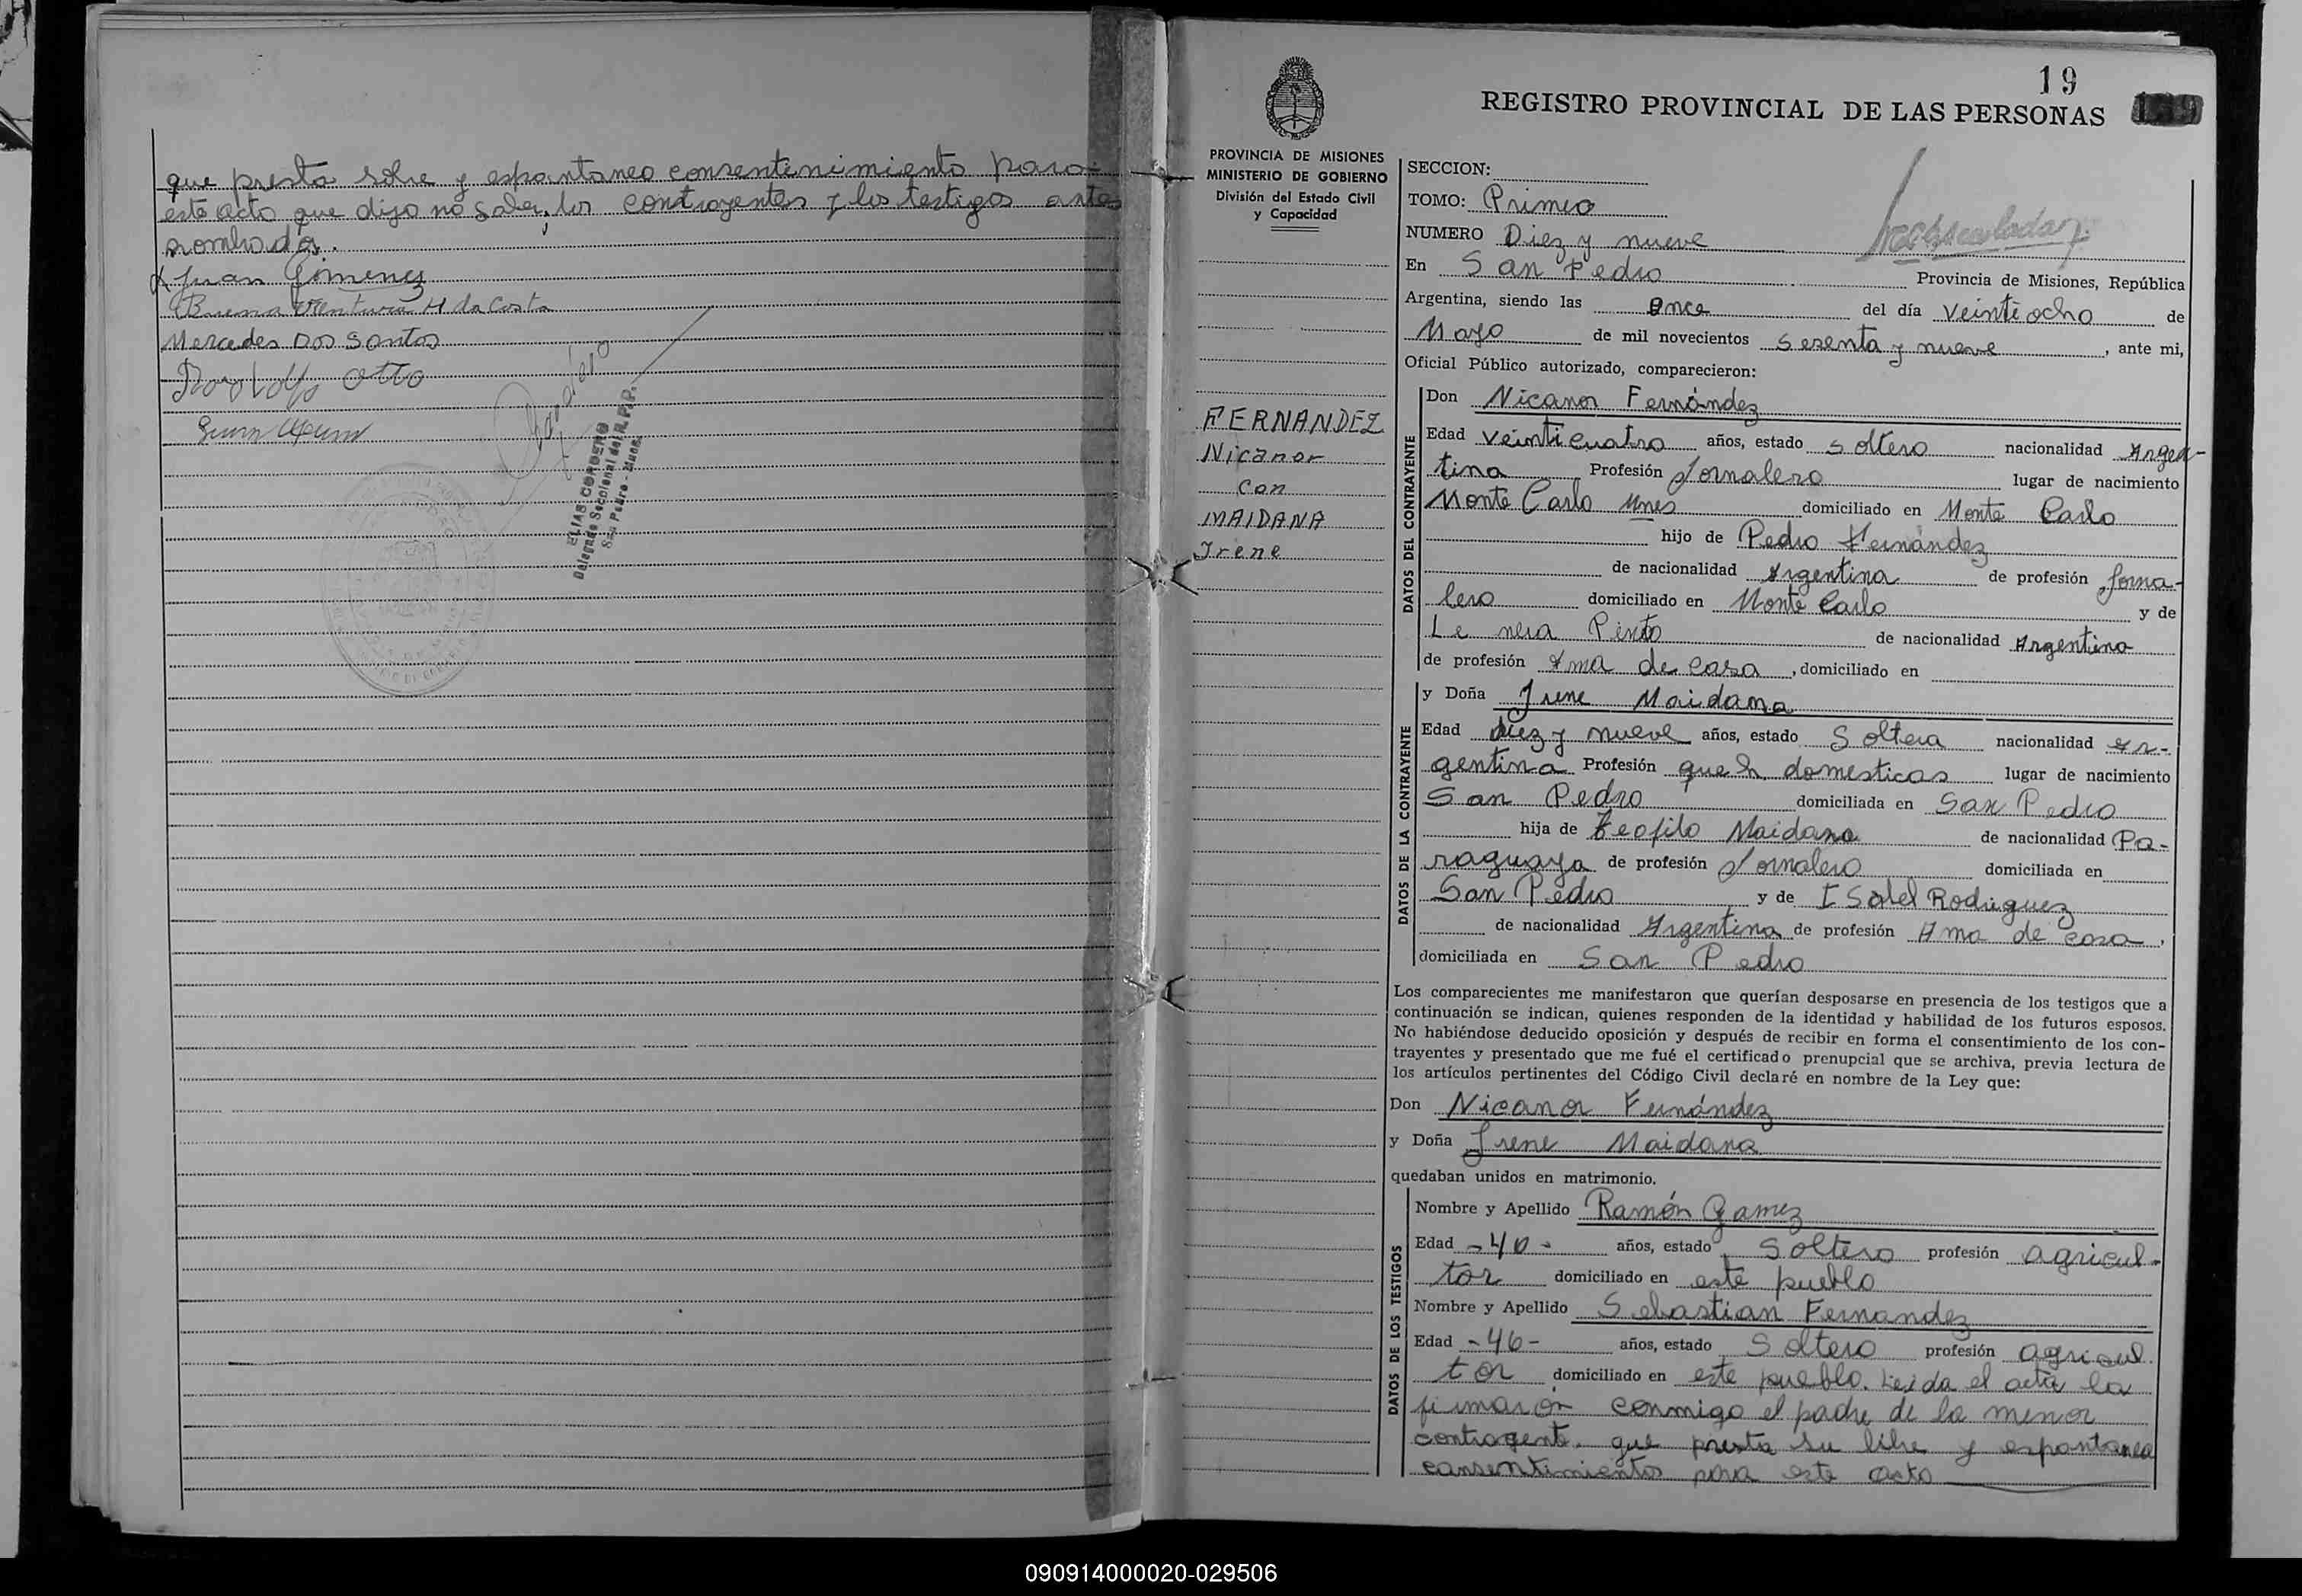 que presta sobre y espontaneo consentenimiento para
este acto que dijo no saber, los contrayentes y los testigos antes
nombrados.
Juan Gimenez
Buena Ventura H da Costa
Mercedes Dos Santos
Otto
ELIAS CORDERO
Delegado Seccional del R.P.P.
San Pedro - Mnes.
19
REGISTRO PROVINCIAL DE LAS PERSONAS
PROVINCIA DE MISIONES
MINISTERIO DE GOBIERNO
División del Estado Civil
y Capacidad
FERNANDEZ
Nicanor
con
MAIDANA
Irene
SECCION:
TOMO: Primero
NUMERO Diez y nueve
En San Pedro Provincia de Misiones, República
Argentina, siendo las once del día veintiocho de
Mayo de mil novecientos sesenta y nueve, ante mi,
Oficial Público autorizado, comparecieron:
DATOS DEL CONTRAYENTE
Don Nicanor Fernández
Edad veinticuatro años, estado soltero nacionalidad Argen-
tina Profesión Jornalero lugar de nacimiento
Monte Carlo Mnes domiciliado en Monte Carlo
hijo de Pedro Fernández
de nacionalidad Argentina de profesión Jorna-
lero domiciliado en Monte Carlo y de
Pinto de nacionalidad Argentina
de profesión Ama de casa, domiciliado en
DATOS DE LA CONTRAYENTE
y Doña Irene Maidana
Edad diez y nueve años, estado Soltera nacionalidad Ar-
gentina Profesión queh domesticos lugar de nacimiento
San Pedro domiciliada en San Pedro
hija de Teofilo Maidana de nacionalidad Pa-
raguaya de profesión Jornalero domiciliada en
San Pedro y de Isabel Rodriguez
de nacionalidad Argentina de profesión Ama de casa,
domiciliada en San Pedro
Los comparecientes me manifestaron que querían desposarse en presencia de los testigos que a
continuación se indican, quienes responden de la identidad y habilidad de los futuros esposos.
No habiéndose deducido oposición y después de recibir en forma el consentimiento de los con-
trayentes y presentado que me fué el certificado prenupcial que se archiva, previa lectura de
los artículos pertinentes del Código Civil declaré en nombre de la Ley que:
Don Nicanor Fernández
y Doña Irene Maidana
quedaban unidos en matrimonio.
DATOS DE LOS TESTIGOS
Nombre y Apellido Ramón Gamez
Edad -40- años, estado Soltero profesión agricul-
tor domiciliado en este pueblo
Nombre y Apellido Sebastian Fernandez
Edad -46- años, estado Soltero profesión agricul
tor domiciliado en este pueblo. Leida el acta la
firmaron conmigo el padre de la menor
contrayente. que presta su libre y espontanea
consentimientos para este acto
090914000020-029506